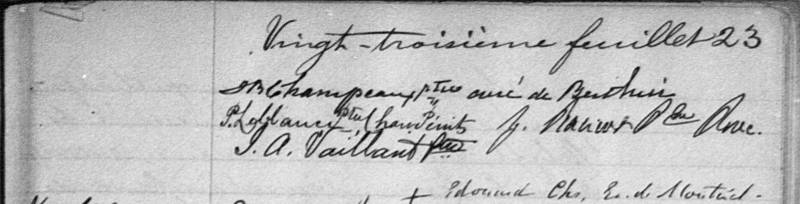 Vingt-troisième feuillet 23
JBChampeau ptre curé de Berthier
P. LeBlanc ptre Chan Pénit J. Racicot Ptre
J. A. Vaillant Ptre
+ Edouard Chs, Ev. de Montréal